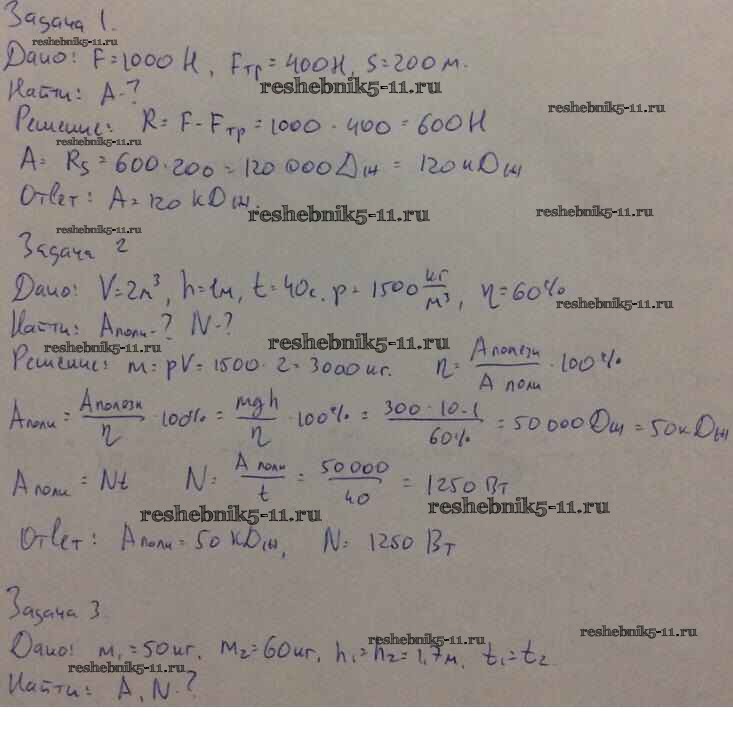 Задача 1.
reshebnik5-11.ru
Дано: F=1000 Н, Fтр=400Н, S=200 м.
reshebnik5-11.ru
Найти: A-?
reshebnik5-11.ru
Решение: R= F-Fтр=1000-400=600Н
reshebnik5-11.ru
A= Rs=600·200=120 000 Дж = 120 кДж
Ответ: A=120 кДж.
reshebnik5-11.ru
reshebnik5-11.ru
reshebnik5-11.ru
Задача 2
Дано: V=2м³, h=1м, t=40с. p=1500 кг/м³, η=60%
reshebnik5-11.ru
Найти: Aполн-? N-?
reshebnik5-11.ru
reshebnik5-11.ru
Решение: m=pV=1500·2=3000 кг. η= Aполезн/A полн ·100%
Aполн = Aполезн/η ·100% = mgh/η ·100% = 300·10·1/60% = 50 000 Дж = 50 кДж
A полн = Nt N= A полн/t = 50000/40 = 1250 Вт
reshebnik5-11.ru
reshebnik5-11.ru
Ответ: Aполн=50 кДж, N= 1250 Вт
Задача 3.
reshebnik5-11.ru
reshebnik5-11.ru
Дано: m₁=50 кг. m₂=60 кг, h₁=h₂=1,7 м. t₁=t₂
reshebnik5-11.ru
Найти: A, N-?